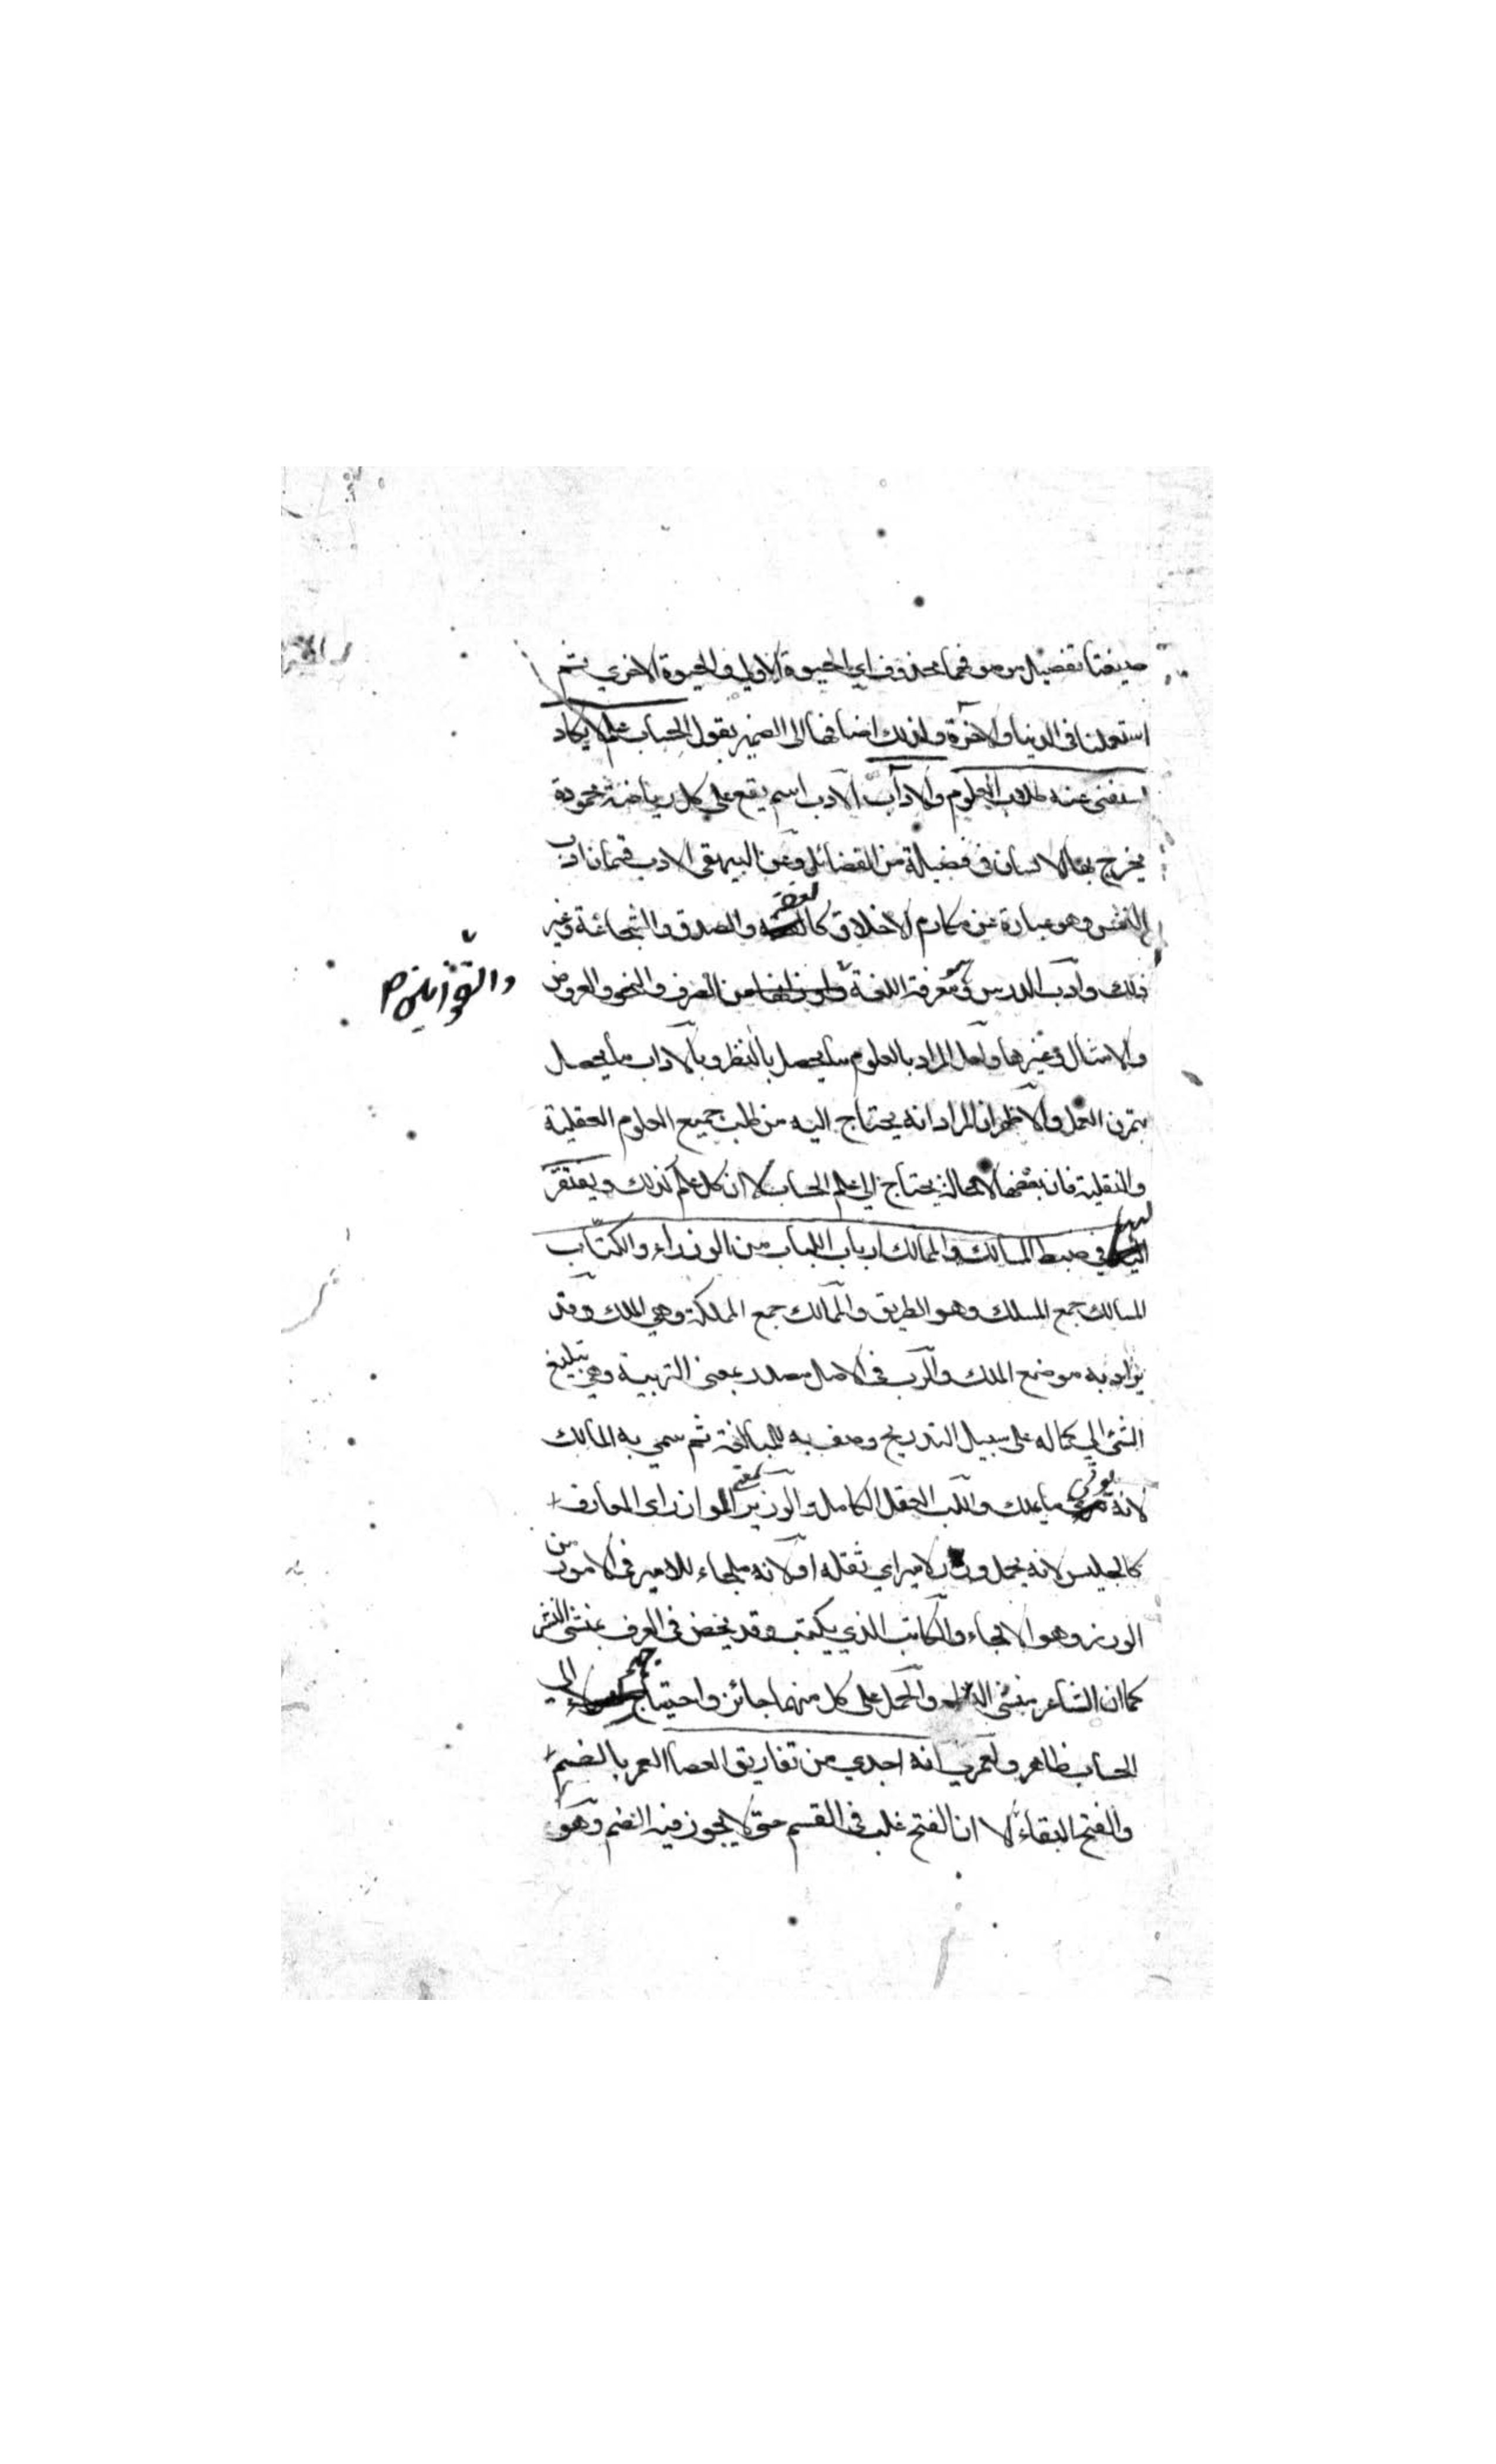 صيغتا تفضيل موصوفهما محذوف اي الحيوة الاولي والحيوة الاخري ثم
استعملتا في الدنيا والآخرة ولذلك اضافهما الى الضمير بقول الحساب علم لا يكاد
يستغني عنه طلاب العلوم والآداب الادب اسم يقع على كل رياضة محمودة
يخرج بها الانسان في فضيلة من الفضائل وعن البيهقي الادب قسمان ادب
النفس وهو عبارة عن مكارم الاخلاق كالعفة والصدق والشجاعة وغير
ذلك وادب الدرس وهو معرفة اللغة من الصرف والنحو والعروض
والقوانين ص
والامثال وغيرها ولعل المراد بالعلوم ما يحصل بالنظر وبالآداب ما يحصل
بتمرن العمل والاظهر ان المراد انه يحتاج اليه من طلب جميع العلوم العقلية
والنقلية فان بعضها لا محالة يحتاج الي علم الحساب لا ان كل علم كذلك ويفتقر
اليه في ضبط المسالك والممالك ارباب الالباب من الوزراء والكتاب
المسالك جمع المسلك وهو الطريق والممالك جمع المملكة وهي الملك وقد
يراد به موضع الملك والرب في الاصل مصدر بمعنى التربية وهي تبليغ
الشئ الي كماله على سبيل التدريج وصف به للمبالغة ثم سمي به المالك
لانه يربي ما يملك واللب العقل الكامل والوزير بمعنى الموازر اي المعارف
كالجليس لانه يحمل وزر الامير اي ثقله او لانه ملجاء للامير في الامور من
الوزر وهو الالجاء والكاتب الذي يكتب وقد يخص في العرف بمنشئ النثر
كما ان الشاعر منشئ النظم والحمل على كل منهما جائز واحتياجهم الي
الحساب ظاهر ولعمري انه اجدي من تفاريق العصا العمر بالضم
والفتح البقاء الا ان الفتح غلب في القسم حتى لا يجوز فيه الضم وهو